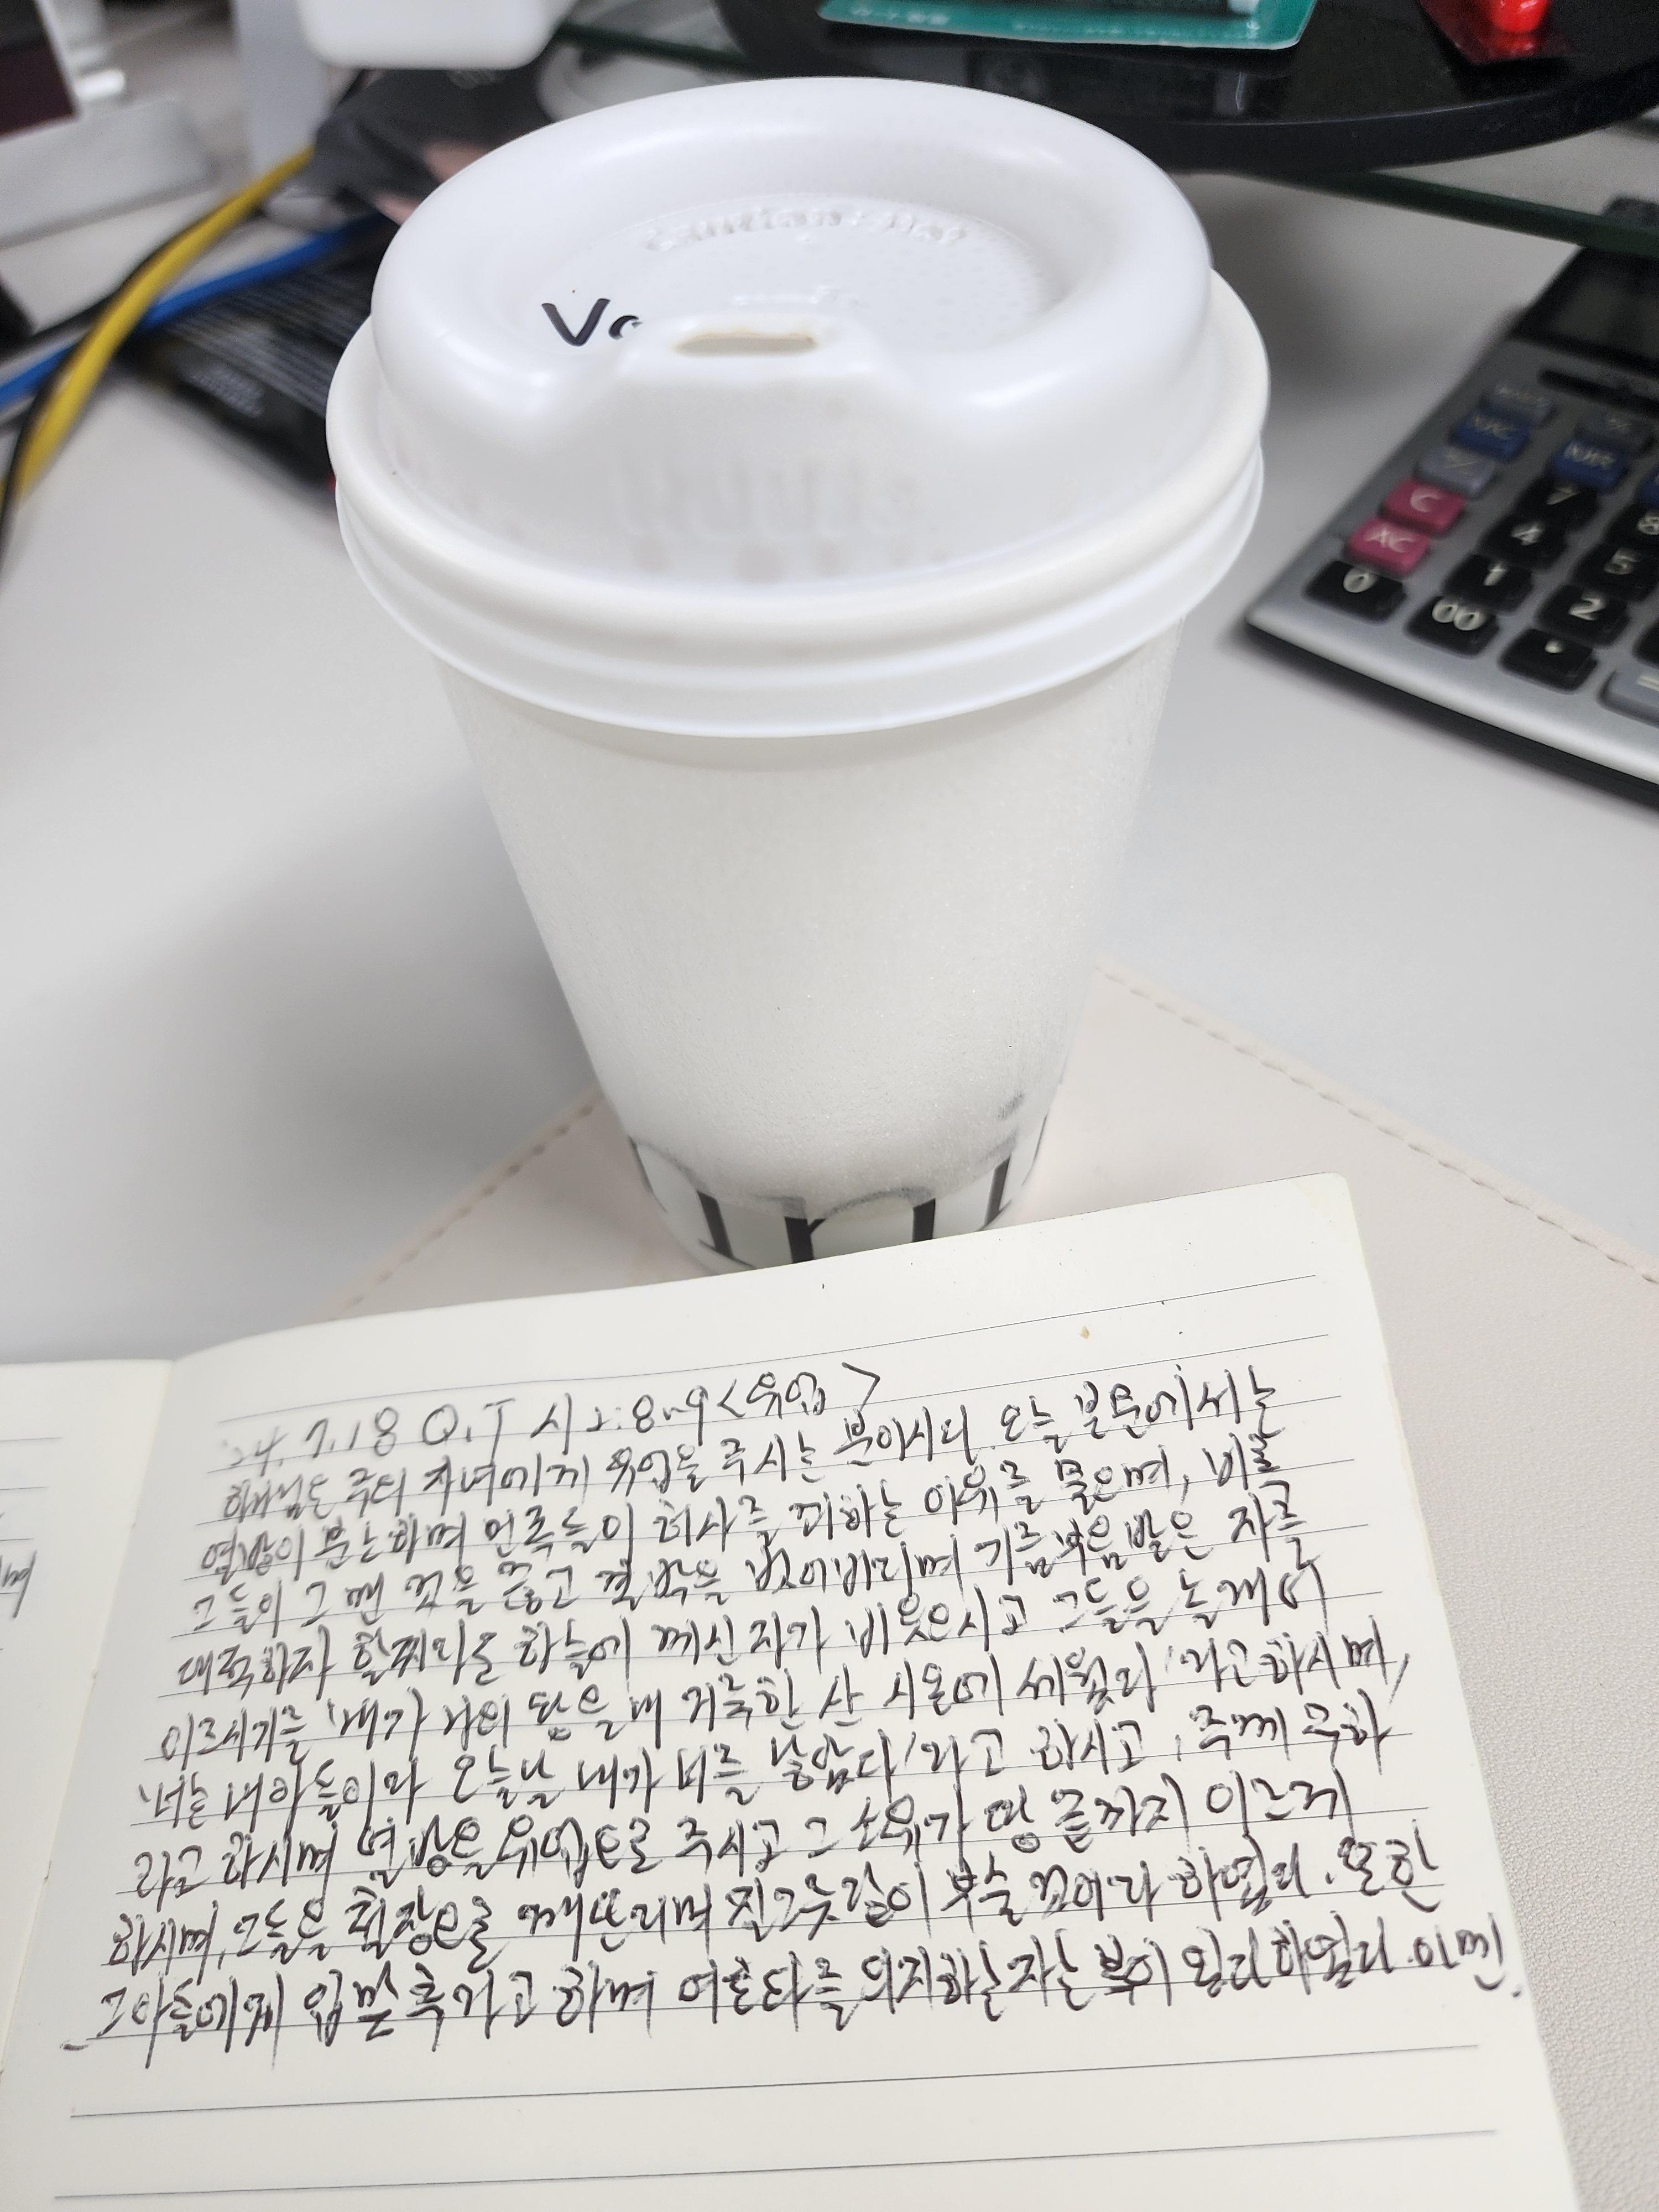 Va
C
AC
7
8
4
5
0
1
00
2
'24. 7. 18 Q.T 시 2:8~9 <유업>
하나님은 주의 자녀에게 유업을 주시는 분이시다. 오늘 본문에서는
열방이 분노하며 민족들이 허사를 꾀하는 이유를 물으며, 비록
그들이 그 맨 것을 끊고 결박을 벗어버리며 기름부음 받은 자를
대적하자 할찌라도 하늘에 계신 자가 비웃으시고 그들을
이르시기를 '내가 나의 왕을 내 거룩한 산 시온에 세웠다' 라고 하시며,
'너는 내 아들이라 오늘날 내가 너를 낳았다' 라고 하시고, 주께 구하
라고 하시며 열방을 유업으로 주시고 그 소유가 땅 끝까지 이르게
하시며, 그들을 철장으로 깨뜨리며 질그릇 같이 부술 것이라 하였다. 또한
그 아들에게 입맞추라고 하며 여호와를 의지하는 자는 복이 있다 하였다. 아멘.